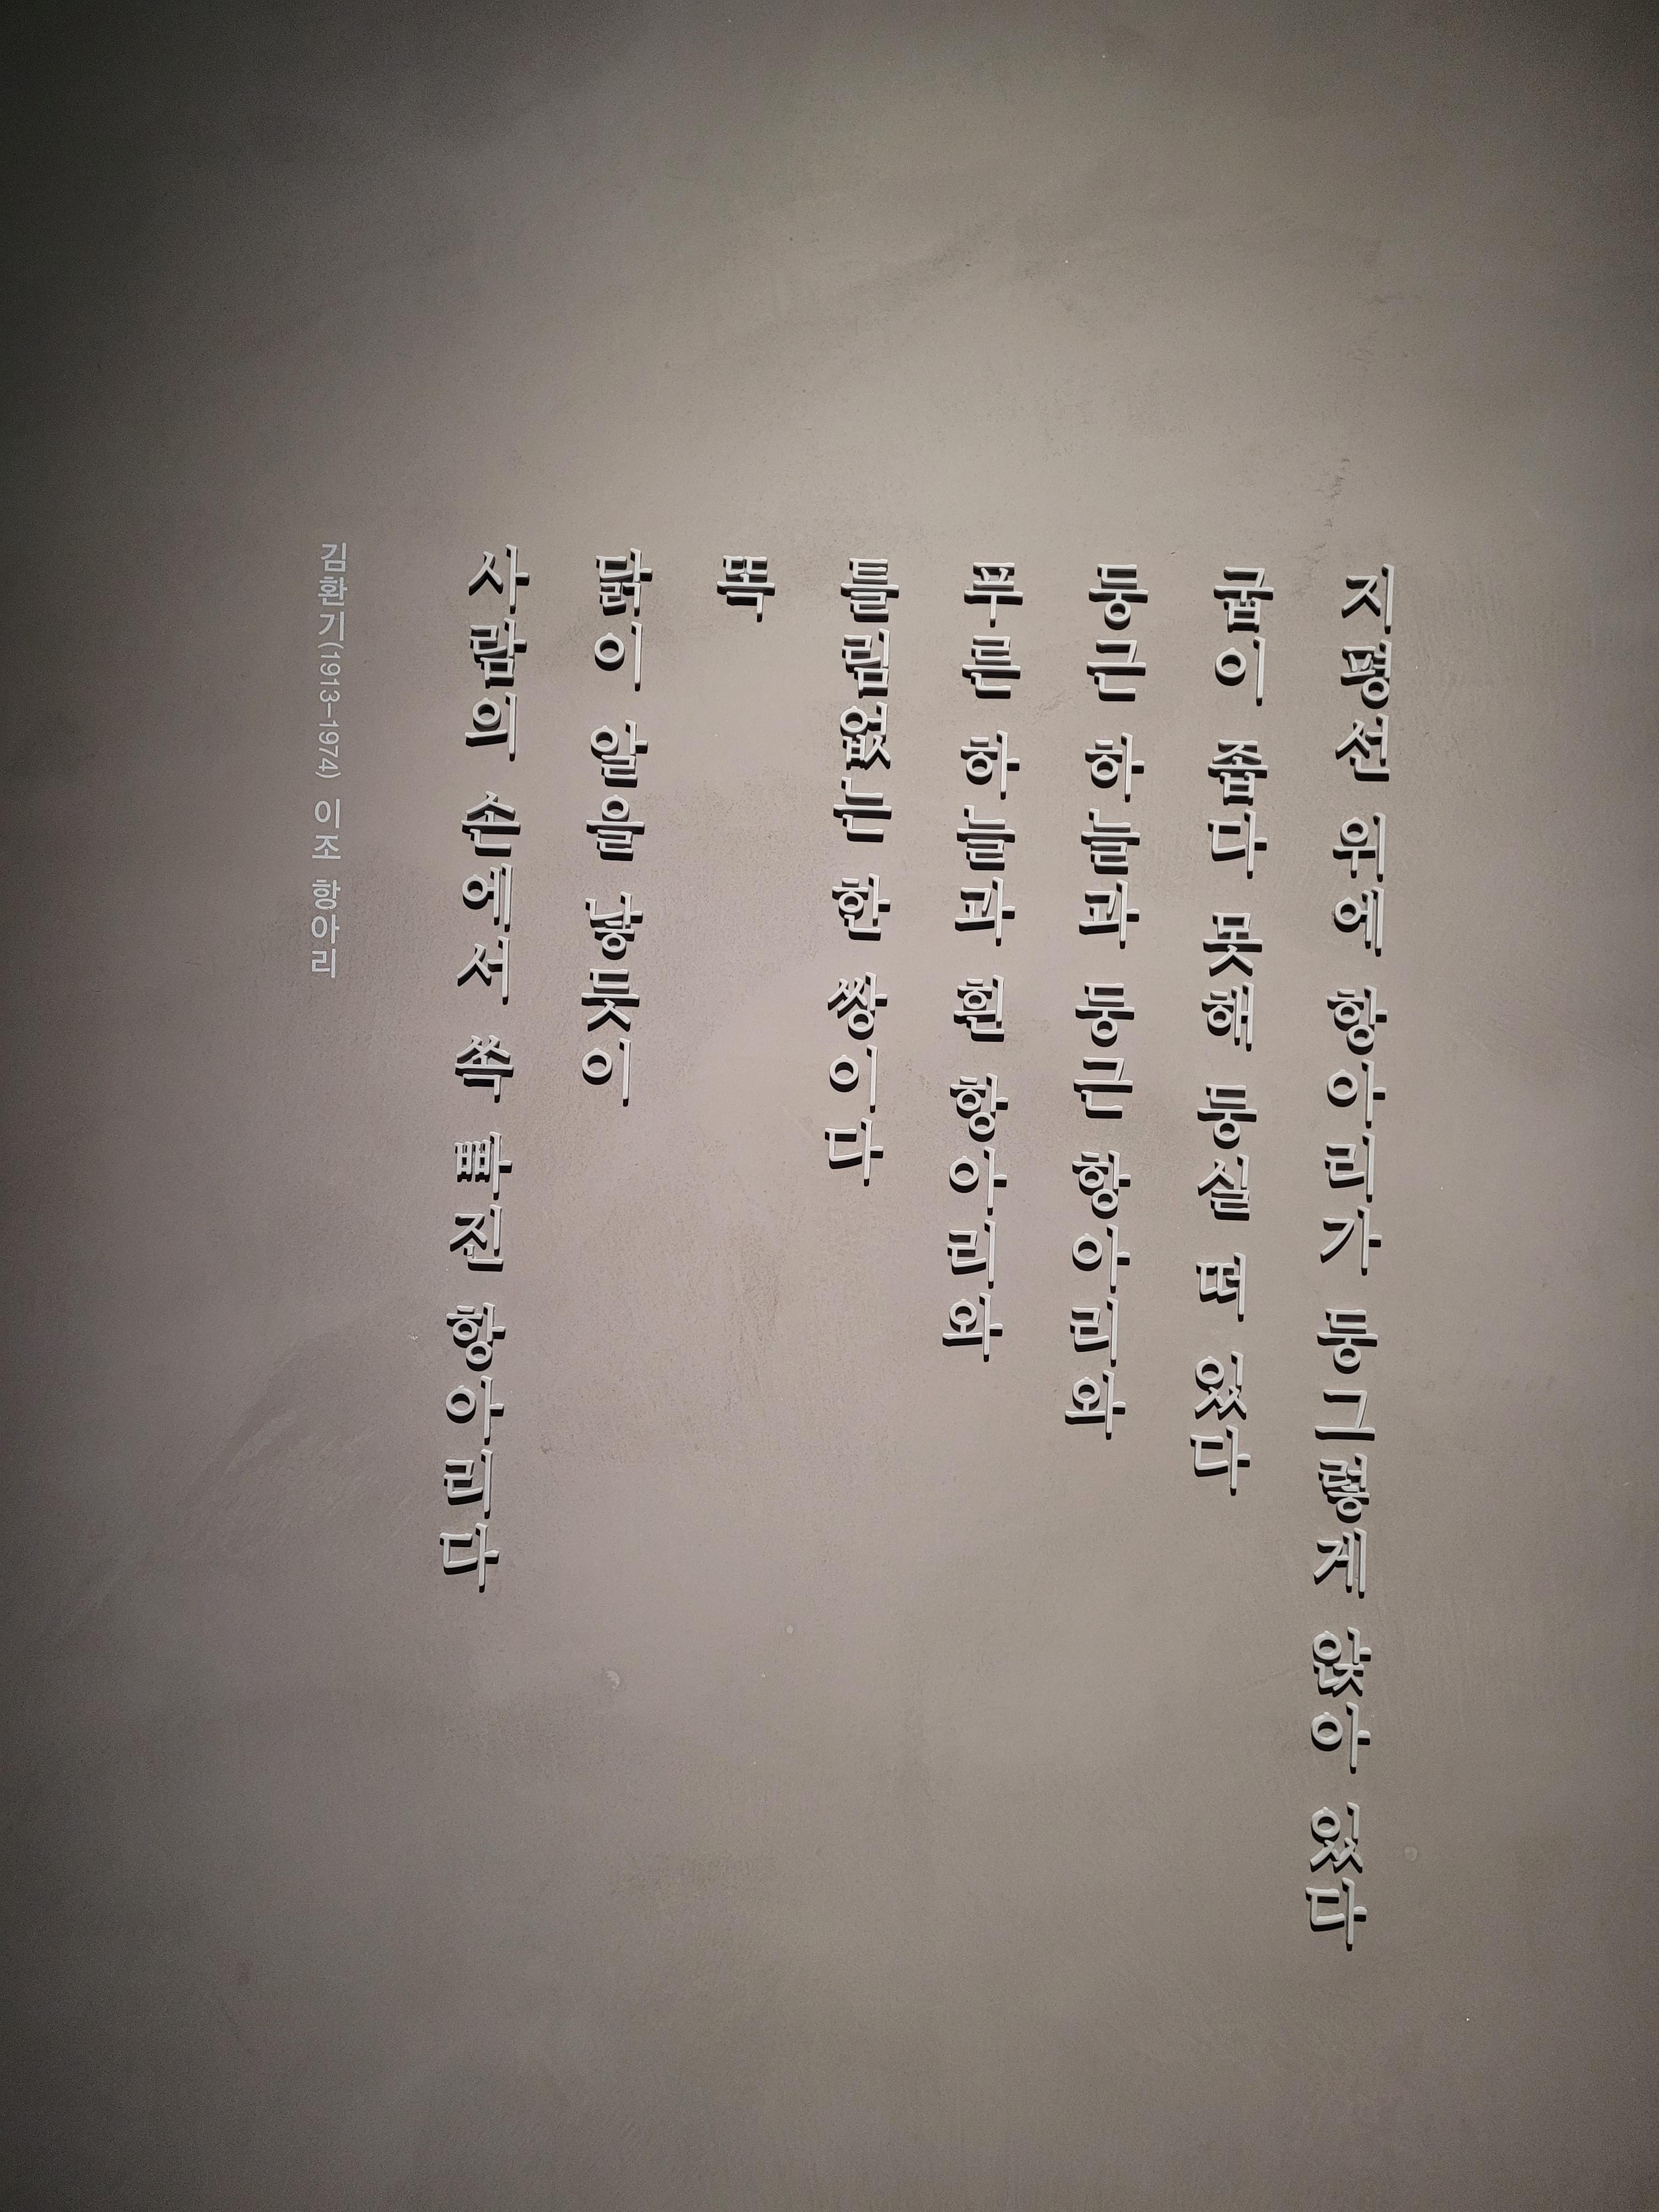 지평선 위에 항아리가 둥그렇게 앉아 있다
굽이 좁다 못해 둥실 떠 있다
둥근 하늘과 둥근 항아리와
푸른 하늘과 흰 항아리와
틀림없는 한 쌍이다
똑
닭이 알을 낳듯이
사람의 손에서 쏙 빠진 항아리다
김환기(1913-1974) 이조 항아리